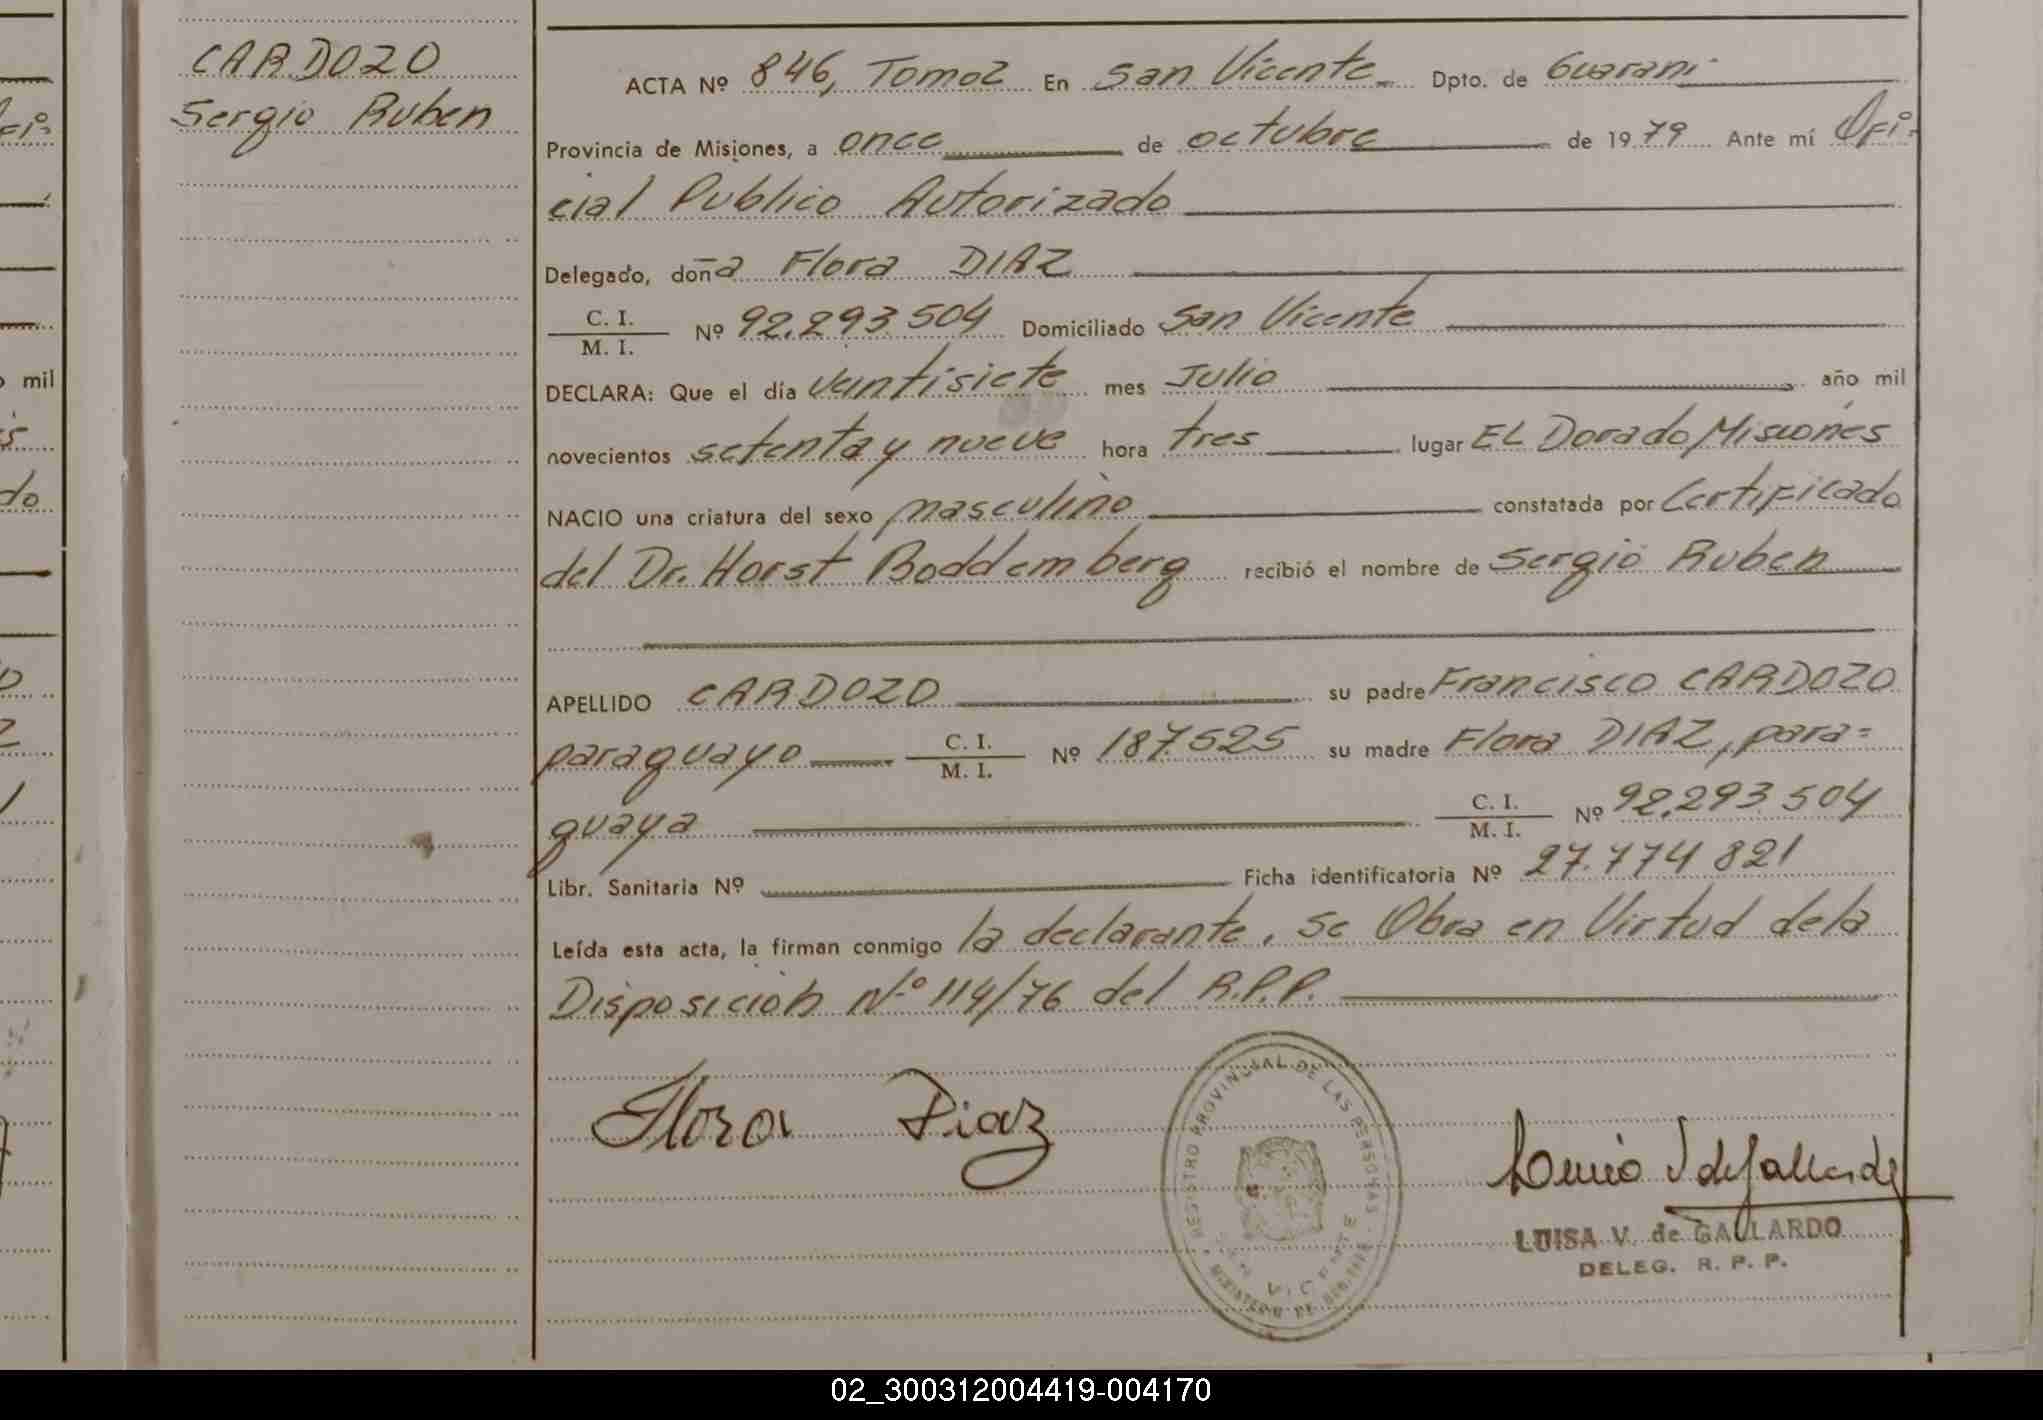 CARDOZO
Sergio Ruben
ACTA Nº 846, Tomo 2 En San Vicente Dpto. de Guarani
Provincia de Misiones, a once de octubre de 1979 Ante mí Ofi-
cial Publico Autorizado
Delegado, doña Flora DIAZ
C. I.
M. I. Nº 92.293.504 Domiciliado San Vicente
DECLARA: Que el día ventisiete mes Julio año mil
novecientos setenta y nueve hora tres lugar EL Dorado, Misiones
NACIO una criatura del sexo masculino constatada por Certificado
del Dr. Horst Boddemberg recibió el nombre de Sergio Ruben
APELLIDO CARDOZO su padre Francisco CARDOZO
paraguayo C. I.
M. I. Nº 187.525 su madre Flora DIAZ, para=
guaya C. I.
M. I. Nº 92.293.504
Libr. Sanitaria Nº Ficha identificatoria Nº 27.774.821
Leída esta acta, la firman conmigo la declarante, Se Obra en Virtud de la
Disposición Nº 114/76 del R.P.P.
Flora Diaz
REGISTRO PROVINCIAL DE LAS PERSONAS
SAN VICENTE
MINISTERIO DE
LUISA V. de GALLARDO
DELEG. R. P. P.
mil
do
02_300312004419-004170